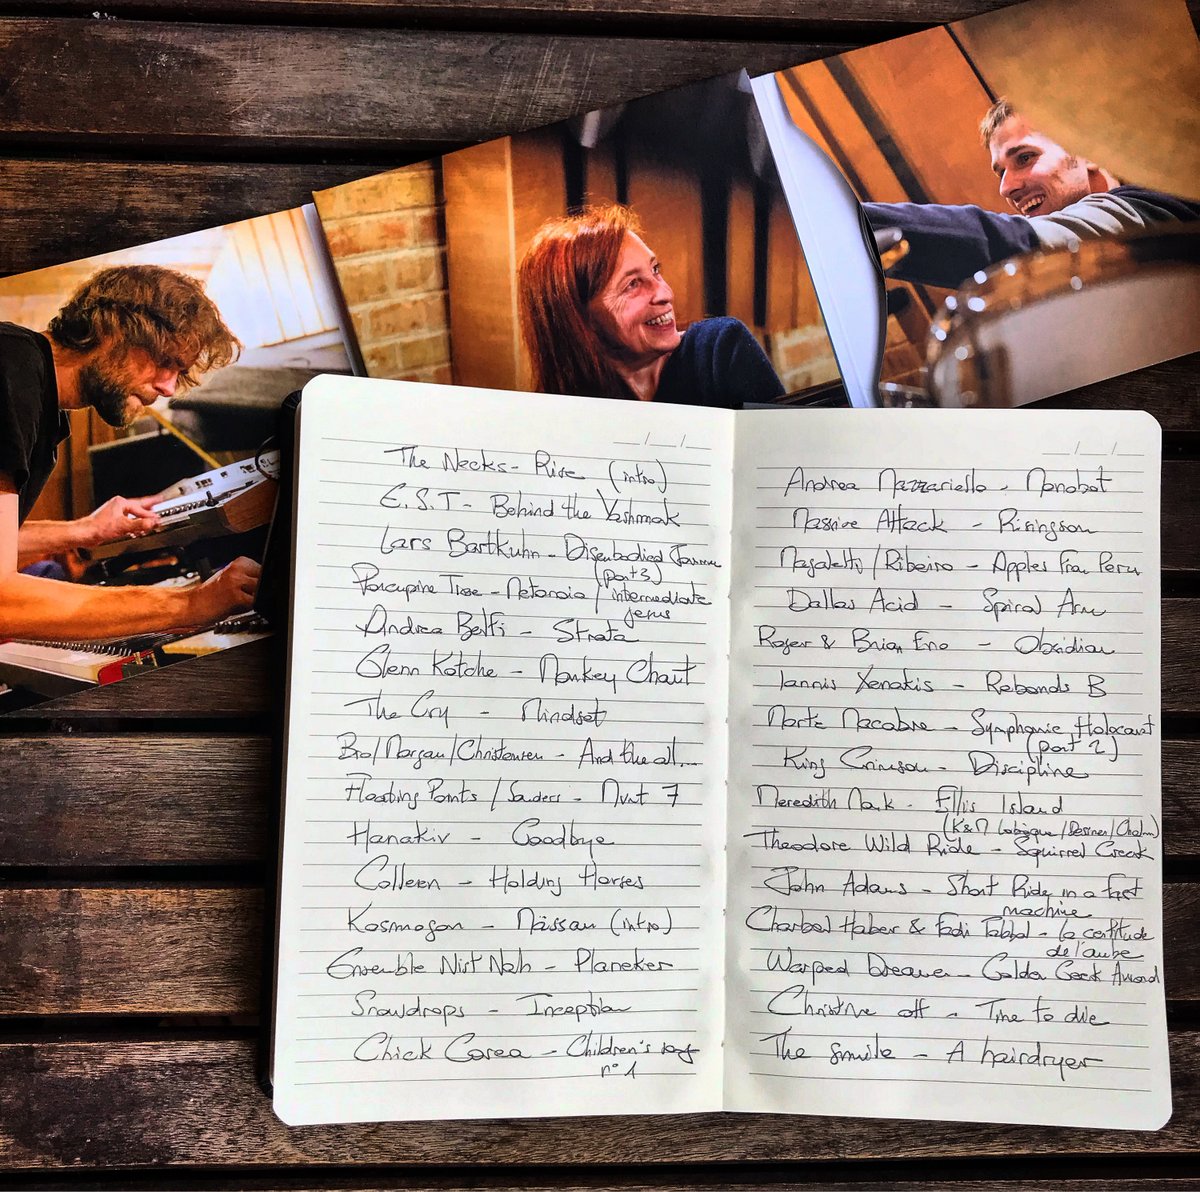 The Necks - Rise (intro)
E.S.T - Behind the Yashmak
Lars Bartkuhn - Disembodied Journey
(part 3)
Porcupine Tree - Metanoia / intermediate
jesus
Andrea Belfi - Strata
Glenn Kotche - Monkey Chant
The Cry - Mindset
Bro/Morgan/Christensen - And the all...
Floating Points / Sanders - Mvmt 7
Hanakiv - Goodbye
Colleen - Holding Horses
Kosmogon - Nässau (intro)
Ensemble Nist Nah - Planeker
Snowdrops - Inception
Chick Corea - Children's song
n° 1
Andrea Mazzariello - Monobot
Massive Attack - Risingson
Magaletti/Ribeiro - Apples From Peru
Dallas Acid - Spiral Arm
Roger & Brian Eno - Obsidian
Iannis Xenakis - Rebonds B
Morte Macabre - Symphonic Holocaust
(part 2)
King Crimson - Discipline
Meredith Monk - Ellis Island
(K&M Labèque / /Chalmin)
Theodore Wild Ride - Squirrel Creek
John Adams - Short Ride in a fast
machine
Charbel Haber & Fadi Tabbal - la certitude
de l'aube
Warped Dreamer - Golden Geek Award
Christine ott - Time to die
The smile - A hairdryer